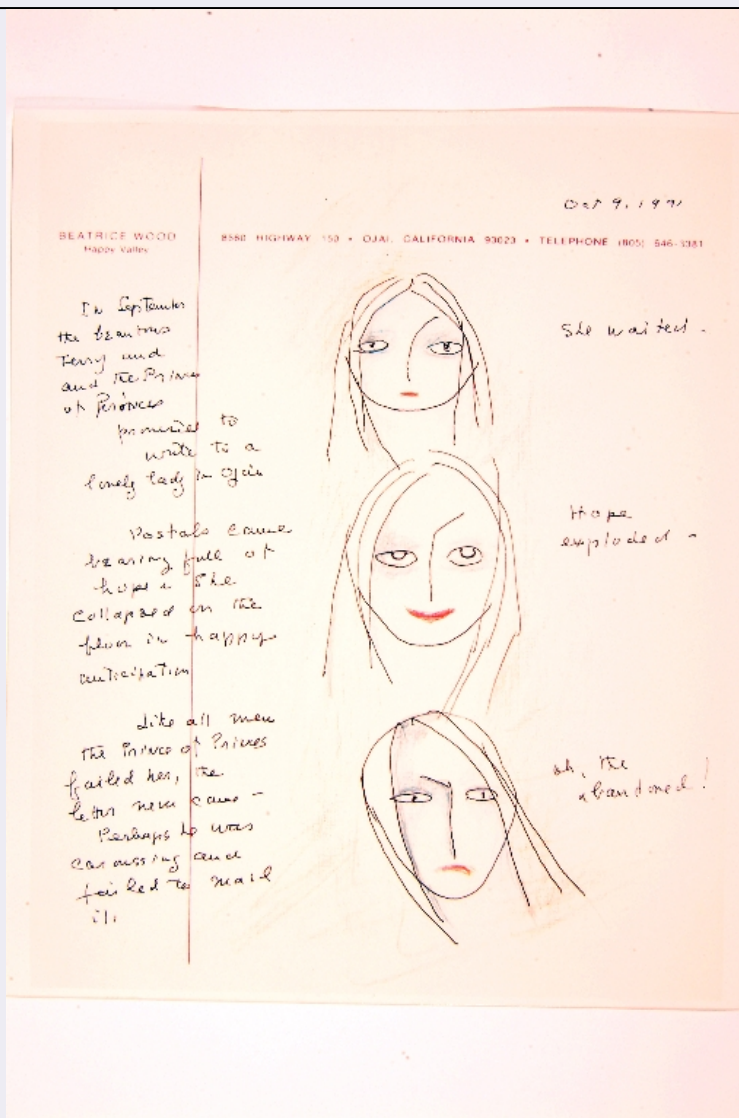 Oct 9, 1971
BEATRICE WOOD
Happy Valley
8560 HIGHWAY 150 • OJAI, CALIFORNIA 93023 • TELEPHONE (805) 646-3381
In September
the beauteous
Terry and
and the Prince
of Princes
promised to
write to a
lonely lady in Ojai
Postals came
bearing full of
hope & She
collapsed on the
floor in happy
anticipation
Like all men
the Prince of Princes
failed her, the
letter never came –
Perhaps he was
carousing and
failed to mail
it.
She waited –
Hope
exploded –
oh, the
abandoned!